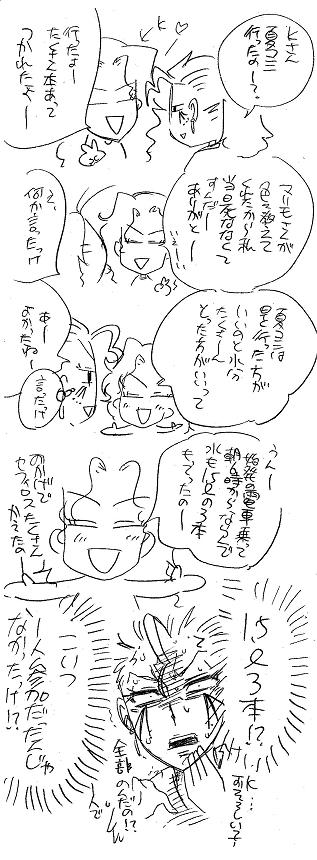 Kさん
夏コミ
行ったのー?
K
行たよー
たくさん本あって
つかれたよー
マリモさんが
色々教えて
くれたから私
当日死ななくて
すんだー
ありがとー
え、
何か言ったっけ
夏コミは
早く行った方が
いいのと水分
たくさーん
とった方がいいって
あー
よかったねー
言ったっけ
うんー
始発の電車乗って
朝6時からならんで
水も1.5ℓの3本
もってったのー
おかげで
セフィロスたくさん
かえたの
1.5ℓ3本!?
K…
恐ろしい子!
こいつ
一人参加だったんじゃ
なかったっけ!?
全部
のんだの!?